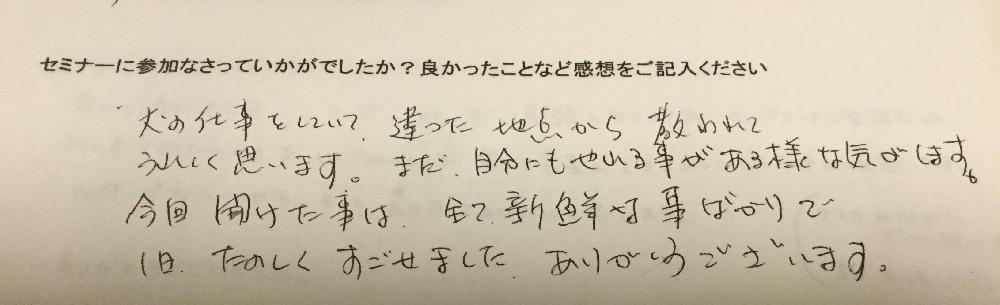 セミナーに参加なさっていかがでしたか?良かったことなど感想をご記入ください
犬の仕事をしていて、違った地点から教われて
うれしく思います。まだ、自分にもやれる事がある様な気がします。
今回聞けた事は、全て新鮮な事ばかりで
1日、たのしくすごせました。ありがとうございます。